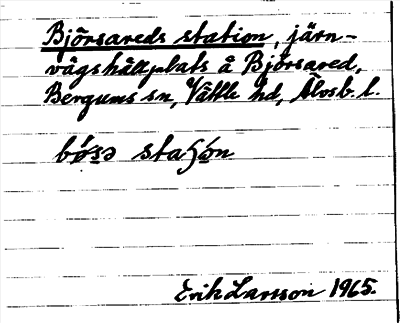 Björsareds station, järn-
vägshållplats å Björsared,
Bergums sn, Vättle hd, Älvsb. l.
bø̀sə staʃón
Erik Larsson 1965.